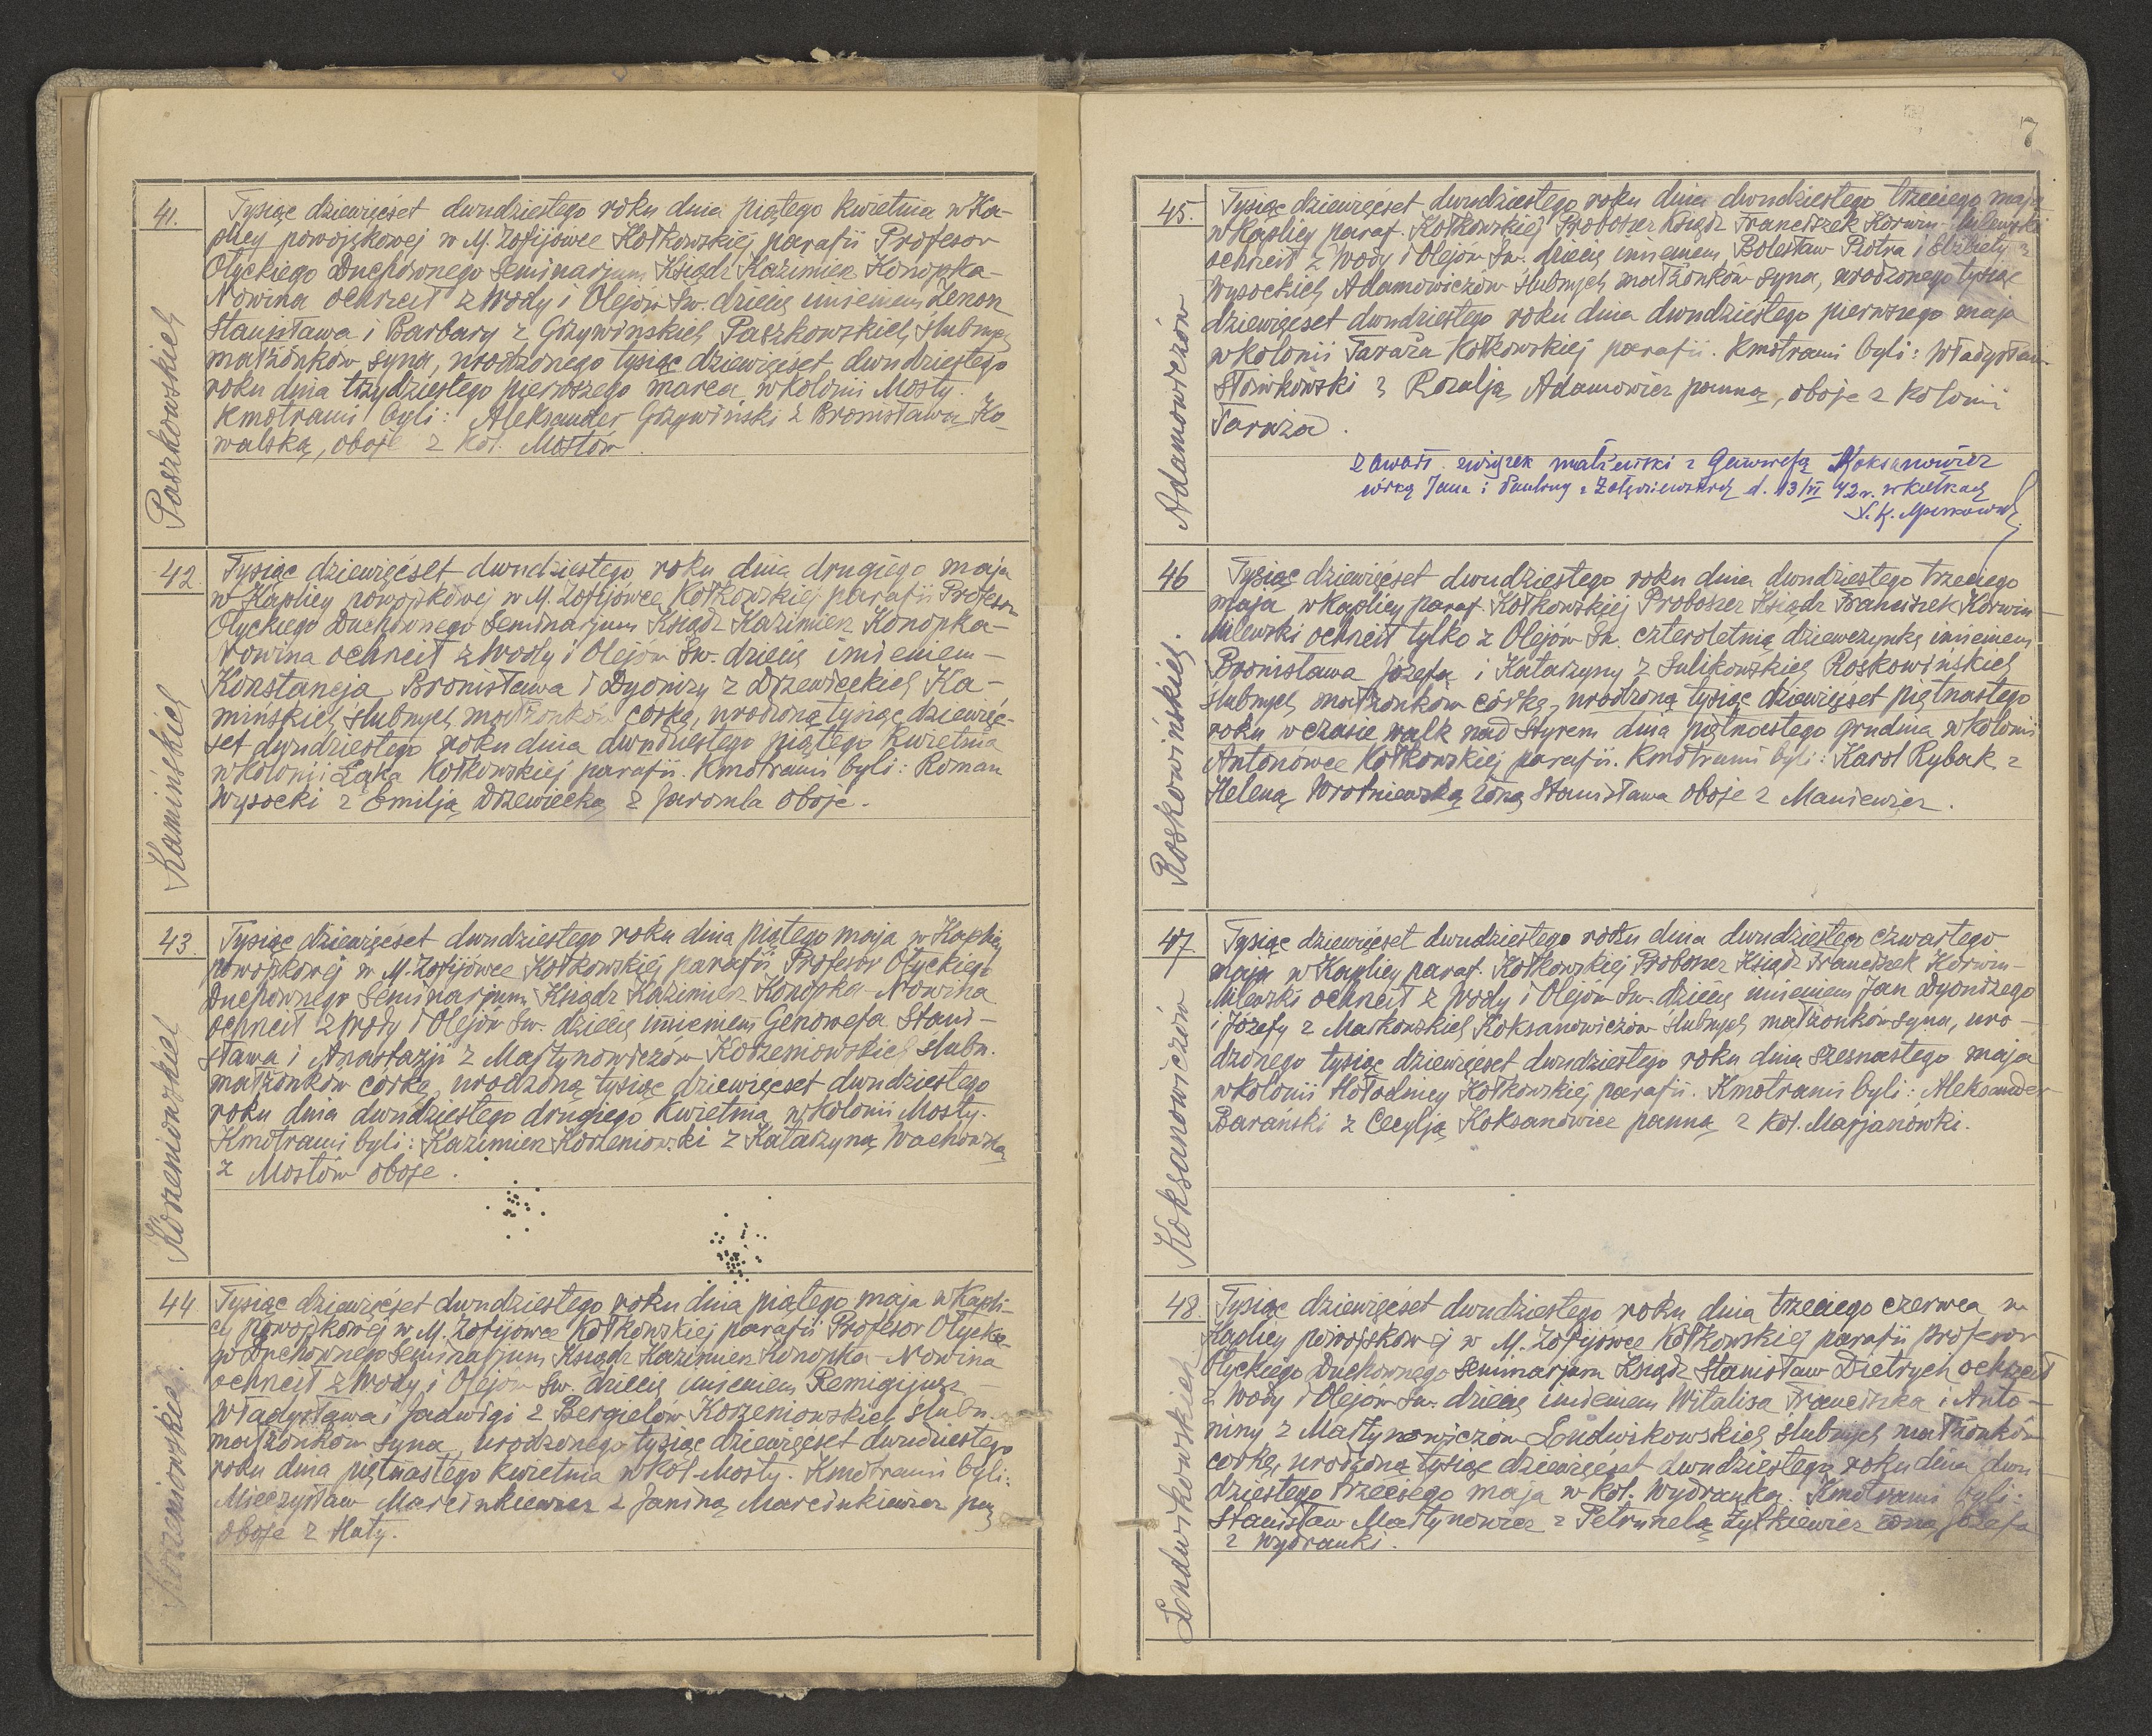 41.
Paszkowskich
Tysiąc dziewięćset dwudziestego roku dnia piątego kwietnia w Ka-
plicy powojskowej w M. Zofijówce Kołkowskiej parafii Profesor
Ołyckiego Duchownego Seminarjum Ksiądz Kazimierz Konopka-
Nowina ochrzcił z Wody i Olejów Św. dziecię imieniem Zenon
Stanisława i Barbary z Grzywińskich Paszkowskich, ślubnych
małżonków syna, urodzonego tysiąc dziewięćset dwudziestego
roku dnia trzydziestego pierwszego marca w kolonii Mosty.
Kmotrami byli: Aleksander Grzywiński z Bronisławą Ko-
walską, oboje z kol. Mostów.
42.
Kamińskich
Tysiąc dziewięćset dwudziestego roku dnia drugiego maja
w Kaplicy powojskowej w M. Zofijówce Kołkowskiej parafii Profesor
Ołyckiego Duchownego Seminarjum Ksiądz Kazimierz Konopka-
Nowina ochrzcił z Wody i Olejów Św. dziecię imieniem-
Konstancja Bronisława i Dyonizy z Drzewieckich Ka-
mińskich, ślubnych małżonków córkę, urodzoną tysiąc dziewięć-
set dwudziestego roku dnia dwudziestego piątego kwietnia
w kolonii Łąka Kołkowskiej parafii. Kmotrami byli: Roman
Wysocki z Emilją Drzewiecką z Jaromla oboje.
43.
Korzeniowskich
Tysiąc dziewięćset dwudziestego roku dnia piątego maja w Kaplicy
powojskowej w M. Zofijówce Kołkowskiej parafii Profesor Ołyckiego
Duchownego Seminarjum Ksiądz Kazimierz Konopka-Nowina
ochrzcił z Wody i Olejów Św. dziecię imieniem Genowefa Stani-
sława i Anastazji z Martynowiczów Korzeniowskich ślubn.
małżonków córkę, urodzoną tysiąc dziewięćset dwudziestego
roku dnia dwudziestego drugiego kwietnia w kolonii Mosty.
Kmotrami byli: Kazimierz Korzeniowski z Katarzyną Wachowską
z Mostów oboje.
44.
Korzeniowskie.
Tysiąc dziewięćset dwudziestego roku dnia piątego maja w Kapli-
cy powojskowej w M. Zofijówce Kołkowskiej parafii Profesor Ołyckie-
go Duchownego Seminarjum Ksiądz Kazimierz Konopka-Nowina
ochrzcił z Wody i Olejów Św. dziecię imieniem Remigijusz
Władysława i Jadwigi z Bergielów Korzeniowskich ślubn.
małżonków syna, urodzonego tysiąc dziewięćset dwudziestego
roku dnia piętnastego kwietnia w kol. Mosty. Kmotrami byli:
Mieczysław Marcinkiewicz z Janiną Marcinkiewicz
oboje z Huty.
7
45.
Adamowiczów
Tysiąc dziewięćset dwudziestego roku dnia dwudziestego trzeciego maja
w Kaplicy paraf. Kołkowskiej Proboszcz Ksiądz Franciszek Korwin-Milewski
ochrzcił z Wody i Olejów Św. dziecię imieniem Bolesław Piotra i Elżbiety z
Wysockich Adamowiczów ślubnych małżonków syna, urodzonego tysiąc
dziewięćset dwudziestego roku dnia dwudziestego pierwszego maja
w kolonii Taraża Kołkowskiej parafii. Kmotrami byli: Władysław
Słowikowski z Rozalją Adamowicz panną, oboje z kolonii
Taraża.
zawarł związek małżeński z Genowefą Koksanowicz
córką Jana i Pauliny z d. 13/VI 42 r. w Kołkach
46
Roskowińskich.
Tysiąc dziewięćset dwudziestego roku dnia dwudziestego trzeciego
maja w Kaplicy paraf. Kołkowskiej Proboszcz Ksiądz Franciszek Korwin-
Milewski ochrzcił tylko z Olejów Św. czteroletnią dziewczynkę imieniem
Bronisława Józefa i Katarzyny z Sulikowskich Roskowińskich
ślubnych małżonków córkę, urodzoną tysiąc dziewięćset piętnastego
roku w czasie walk nad Styrem dnia piętnastego grudnia w kolonii
Antonówce Kołkowskiej parafii. Kmotrami byli: Karol Rybak z
Heleną Wrotniewską żoną Stanisława oboje z Maniewicz.
47
Koksanowiczów
Tysiąc dziewięćset dwudziestego roku dnia dwudziestego czwartego
maja w Kaplicy paraf. Kołkowskiej Proboszcz Ksiądz Franciszek Korwin-
Milewski ochrzcił z Wody i Olejów Św. dziecię imieniem Jan Dyonizego
i Józefy z Markowskich Koksanowiczów ślubnych małżonków syna, uro-
dzonego tysiąc dziewięćset dwudziestego roku dnia szesnastego maja
w kolonii Hołodnicy Kołkowskiej parafii. Kmotrami byli: Aleksander
Barański z Cecylją Koksanowicz panną z kol. Marjanówki.
48.
Lendwikowskich
Tysiąc dziewięćset dwudziestego roku dnia trzeciego czerwca w
Kaplicy powojskowej w M. Zofijówce Kołkowskiej parafii Profesor
Ołyckiego Duchownego Seminarjum Ksiądz Stanisław Dietrych ochrzcił
z Wody i Olejów Św. dziecię imieniem Witalisa Franciszka i Anto-
niny z Martynowiczów Lendwikowskich ślubnych małżonków
córkę, urodzoną tysiąc dziewięćset dwudziestego roku dnia dwu-
dziestego trzeciego maja w kol. Wydranka. Kmotrami byli:
Stanisław Martynowicz z Petrunelą Żytkiewicz żoną Józefa
z Wydranki.